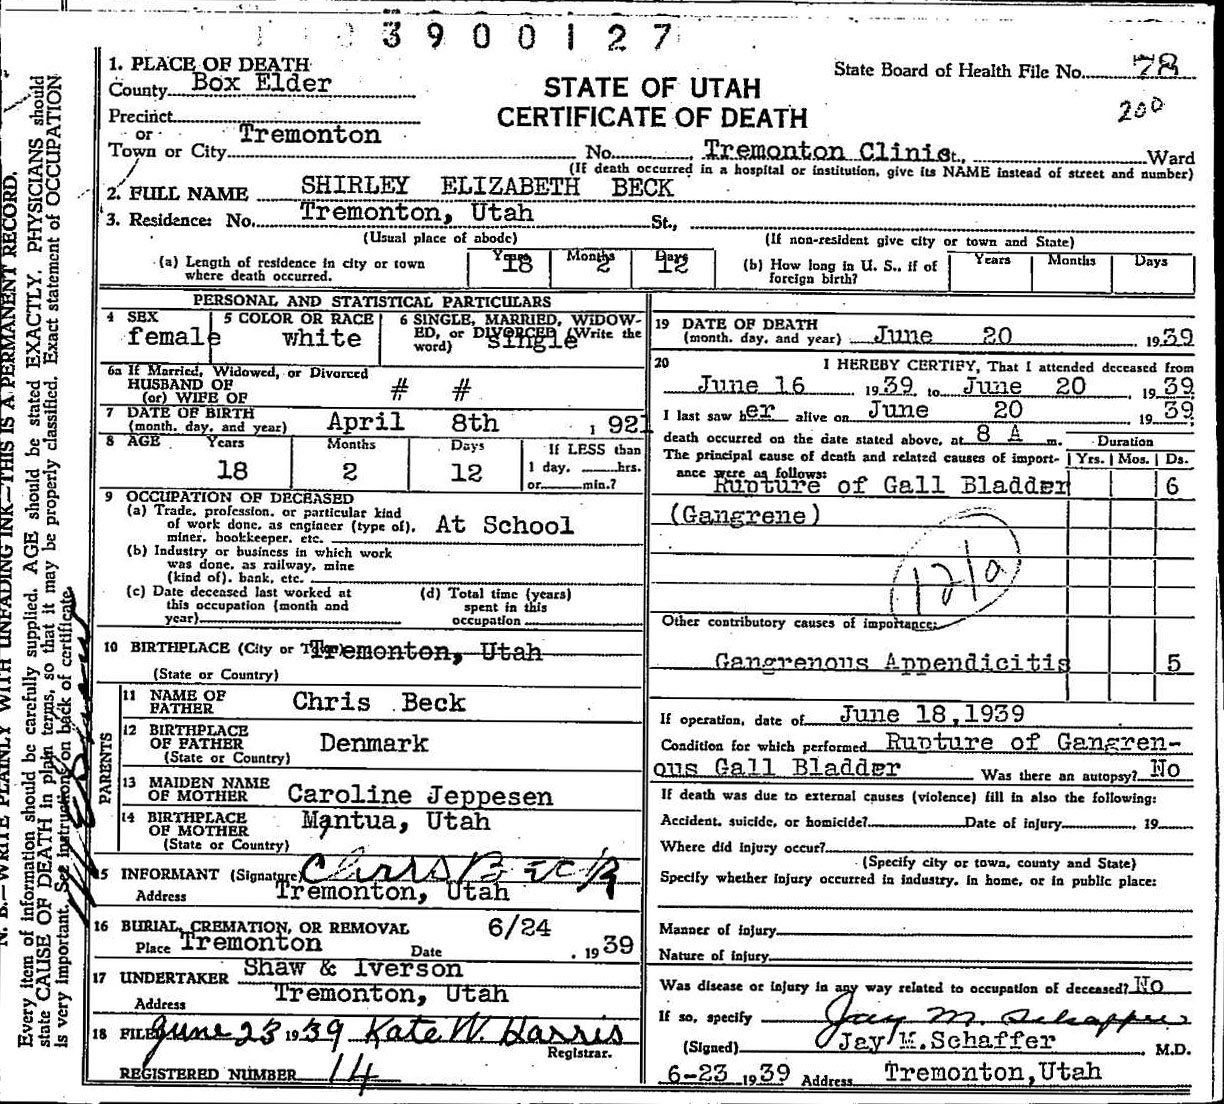 3900127
1. PLACE OF DEATH
County Box Elder
State Board of Health File No. 78
STATE OF UTAH
CERTIFICATE OF DEATH
200
Precinct
or
Town or City Tremonton No. Tremonton Clinic St., Ward
(If death occurred in a hospital or institution, give its NAME instead of street and number)
2. FULL NAME SHIRLEY ELIZABETH BECK
3. Residence: No. Tremonton, Utah St.,
(Usual place of abode) (If non-resident give city or town and State)
(a) Length of residence in city or town where death occurred. Years 18 Months 2 Days 12
(b) How long in U. S., if of foreign birth? Years Months Days
PERSONAL AND STATISTICAL PARTICULARS
4 SEX female
5 COLOR OR RACE white
6 SINGLE, MARRIED, WIDOWED, or DIVORCED (Write the word) single
6a If Married, Widowed, or Divorced
HUSBAND OF
(or) WIFE OF # #
7 DATE OF BIRTH
(month, day, and year) April 8th 1921
8 AGE Years Months Days If LESS than
18 2 12 1 day, hrs.
or min.?
9 OCCUPATION OF DECEASED
(a) Trade, profession, or particular kind
of work done, as engineer (type of), At School
miner, bookkeeper, etc.
(b) Industry or business in which work
was done, as railway, mine
(kind of), bank, etc.
(c) Date deceased last worked at
this occupation (month and
year)
(d) Total time (years)
spent in this
occupation
10 BIRTHPLACE (City or Town) Tremonton, Utah
(State or Country)
PARENTS
11 NAME OF FATHER Chris Beck
12 BIRTHPLACE OF FATHER Denmark
(State or Country)
13 MAIDEN NAME OF MOTHER Caroline Jeppesen
14 BIRTHPLACE OF MOTHER Mantua, Utah
(State or Country)
15 INFORMANT (Signature) Chris Beck
Address Tremonton, Utah
16 BURIAL, CREMATION, OR REMOVAL 6/24
Place Tremonton Date , 1939
17 UNDERTAKER Shaw & Iverson
Address Tremonton, Utah
18 FILED June 23 1939 Kate W. Harris
Registrar.
REGISTERED NUMBER 14
19 DATE OF DEATH
(month, day, and year) June 20 , 1939
20 I HEREBY CERTIFY, That I attended deceased from
June 16 1939 to June 20 , 1939
I last saw her alive on June 20 1939
death occurred on the date stated above, at 8 A m. Duration
The principal cause of death and related causes of importance were as follows: Yrs. Mos. Ds.
Rupture of Gall Bladder 6
(Gangrene)
121a
Other contributory causes of importance:
Gangrenous Appendicitis 5
If operation, date of June 18,1939
Condition for which performed Rupture of Gangren-
ous Gall Bladder Was there an autopsy? No
If death was due to external causes (violence) fill in also the following:
Accident, suicide, or homicide? Date of injury , 19
Where did injury occur?
(Specify city or town, county and State)
Specify whether injury occurred in industry, in home, or in public place:
Manner of injury
Nature of injury
Was disease or injury in any way related to occupation of deceased? No
If so, specify Jay M. Schaffer
(Signed) Jay M.Schaffer , M.D.
6-23 1939 Address Tremonton,Utah
N. B.—WRITE PLAINLY WITH UNFADING INK—THIS IS A PERMANENT RECORD.
Every item of information should be carefully supplied. AGE should be stated EXACTLY. PHYSICIANS should
state CAUSE OF DEATH in plain terms, so that it may be properly classified. Exact statement of OCCUPATION
is very important. See instructions on back of certificate.